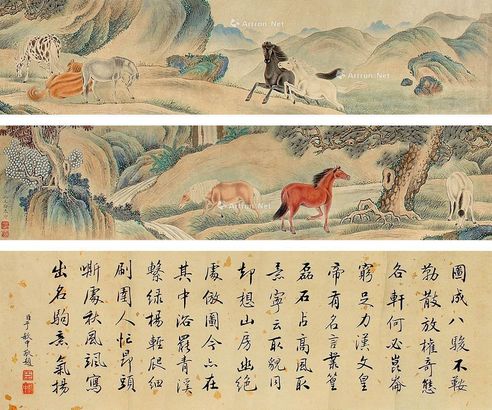 Artron.Net
Artron.Net
Artron.Net
圖成八駿不鞍
勒散放權奇態
各軒何必崑崙
窮足力漢文皇
帝有名言叢篁
磊石占高風取
意寧云取貌同
却想山房幽絕
處倣圖今亦在
其中浴罷青溪
繫綠楊輕爬細
刷圉人忙昂頭
嘶處秋風颯寫
出名駒意氣揚